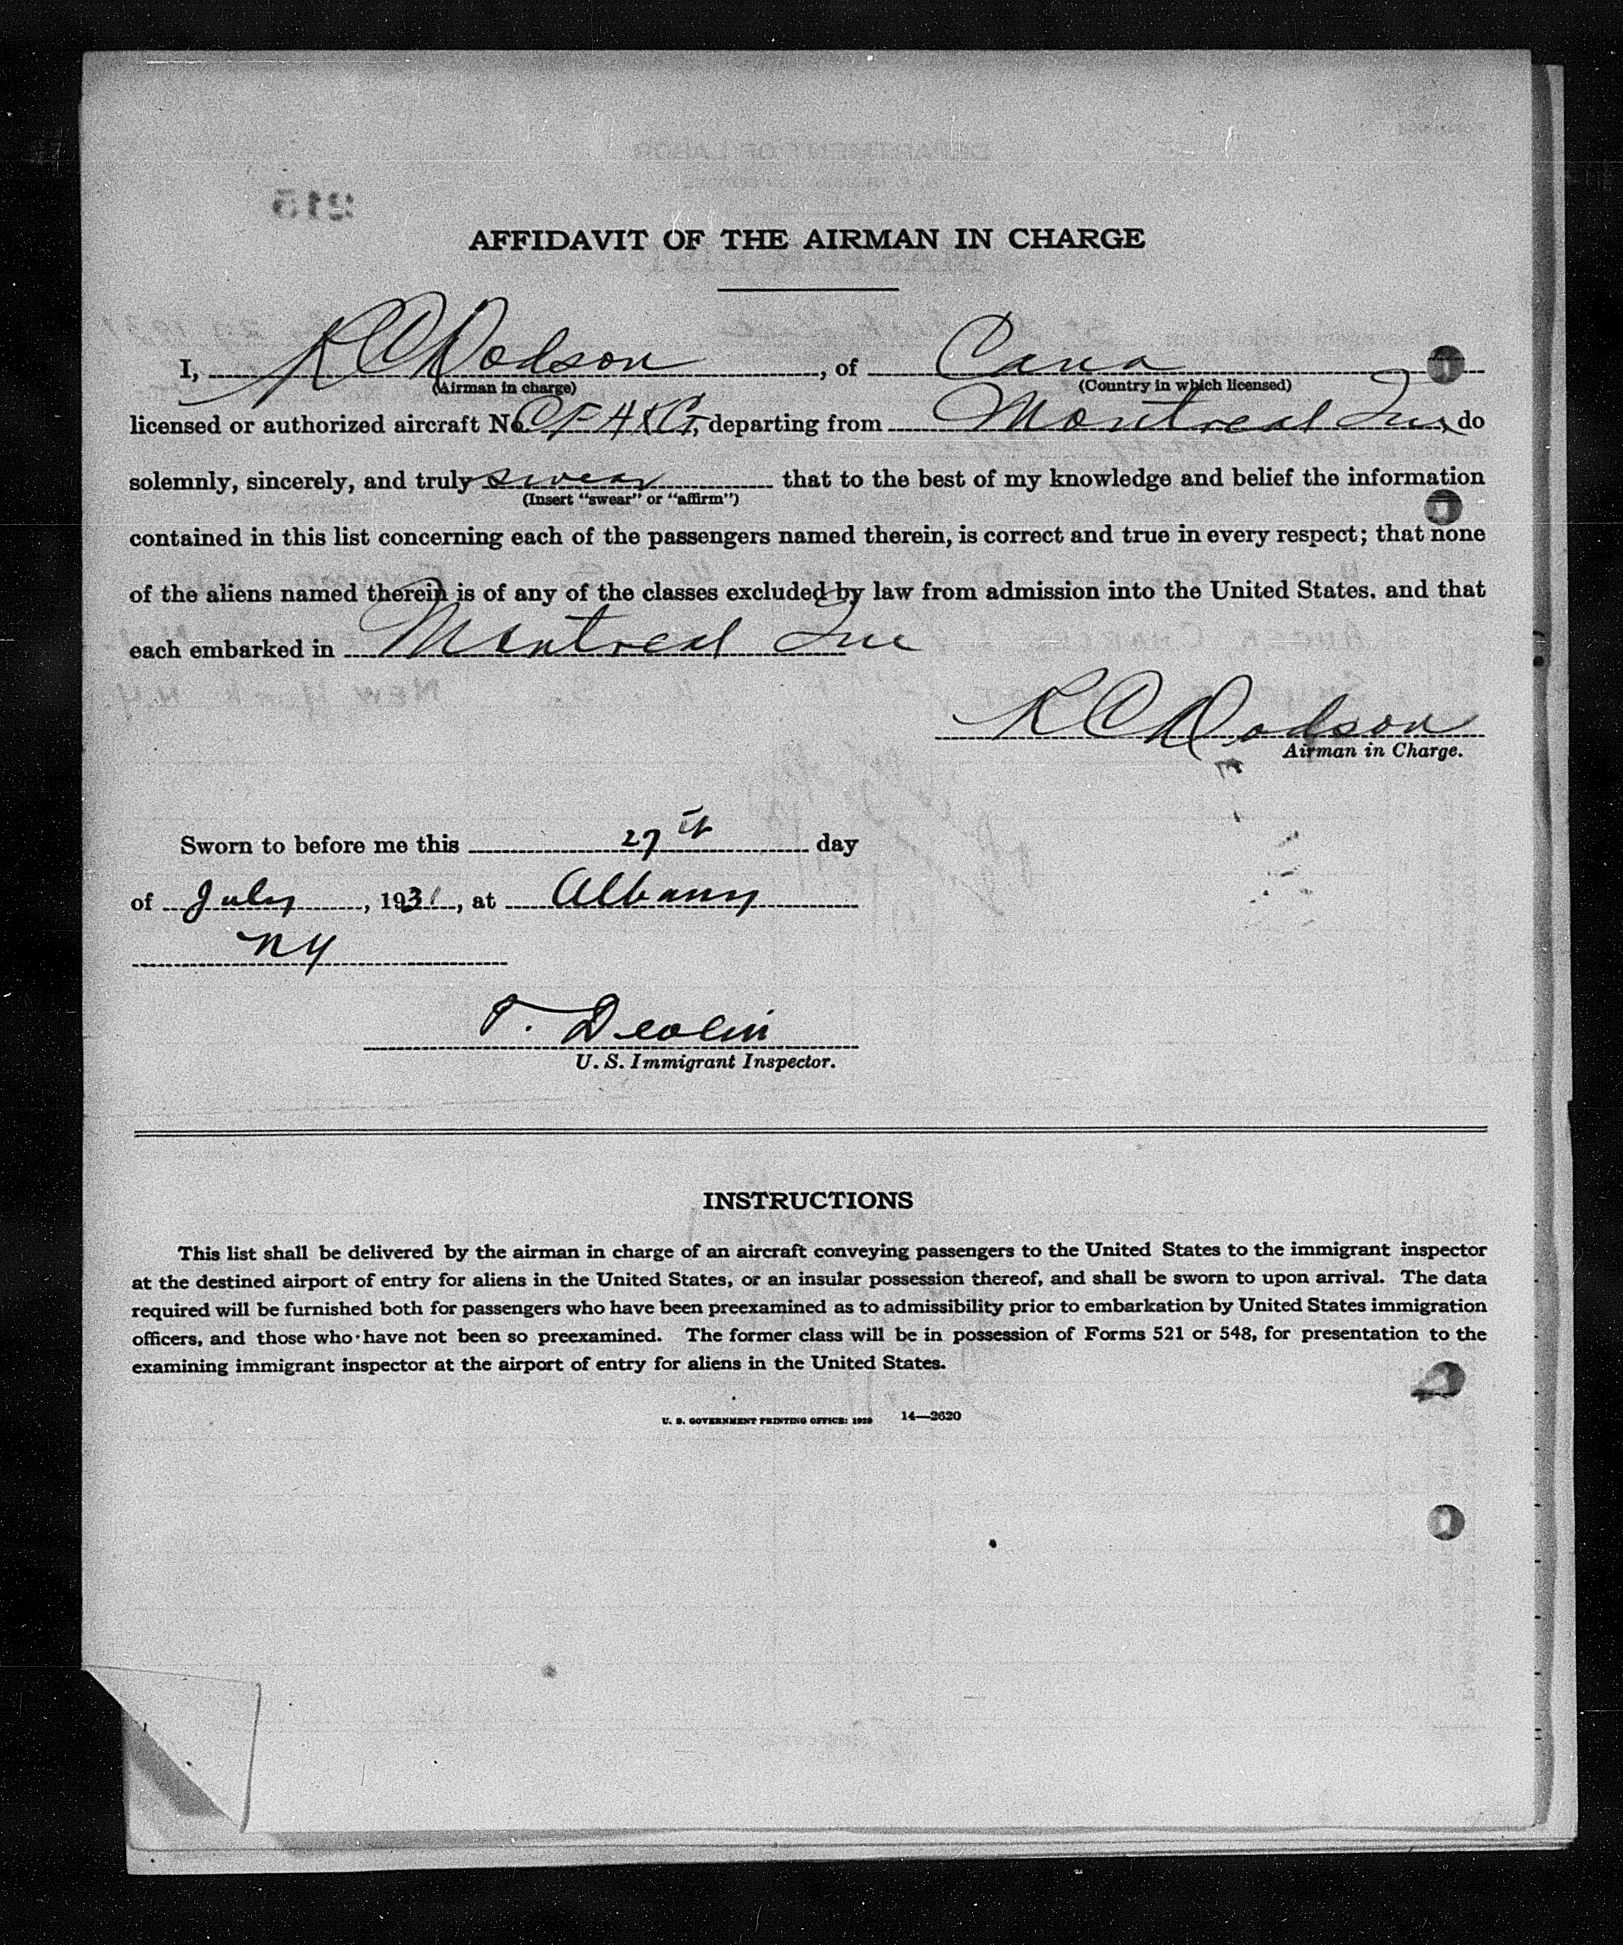 215
AFFIDAVIT OF THE AIRMAN IN CHARGE
I, R C Dodson, of Cana
(Airman in charge) (Country in which licensed)
licensed or authorized aircraft No. CF-AKG, departing from Montreal Que, do
solemnly, sincerely, and truly swear that to the best of my knowledge and belief the information
(Insert "swear" or "affirm")
contained in this list concerning each of the passengers named therein, is correct and true in every respect; that none
of the aliens named therein is of any of the classes excluded by law from admission into the United States, and that
each embarked in Montreal Que
R C Dodson
Airman in Charge.
Sworn to before me this 27th day
of July, 1931, at Albany
NY
T. Devlin
U. S. Immigrant Inspector.
INSTRUCTIONS
This list shall be delivered by the airman in charge of an aircraft conveying passengers to the United States to the immigrant inspector
at the destined airport of entry for aliens in the United States, or an insular possession thereof, and shall be sworn to upon arrival. The data
required will be furnished both for passengers who have been preexamined as to admissibility prior to embarkation by United States immigration
officers, and those who have not been so preexamined. The former class will be in possession of Forms 521 or 548, for presentation to the
examining immigrant inspector at the airport of entry for aliens in the United States.
U. S. GOVERNMENT PRINTING OFFICE: 1929 14—2620